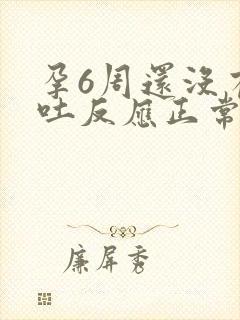 孕6周還沒
吐反應正常
廉屏秀